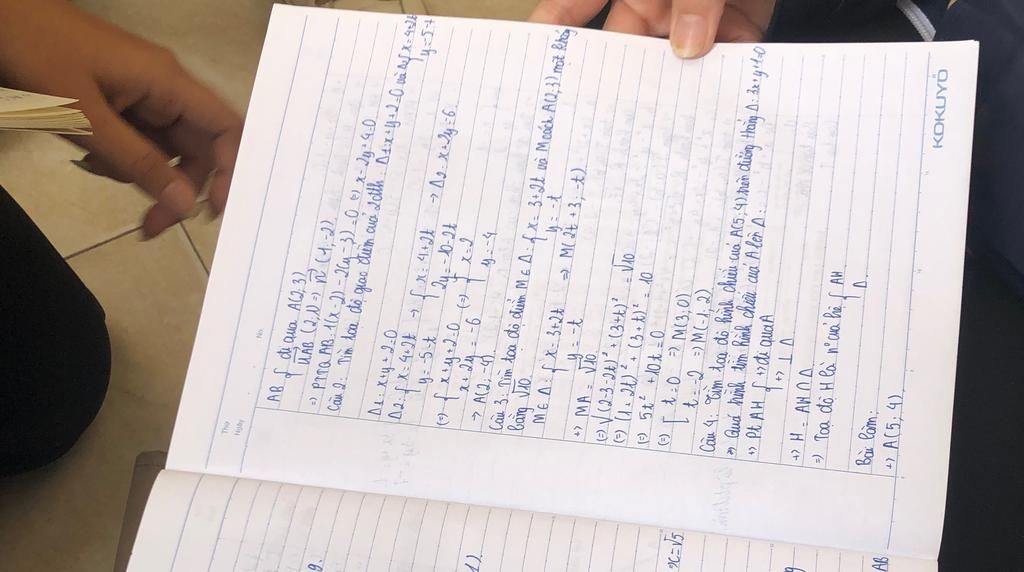 Thứ
Ngày
No.
AB { đi qua A(2,3)
uAB (2,1) => n (1,-2)
=> PTTQ AB: 1(x-2) - 2(y-3) = 0 (=) x - 2y + 4 = 0
Câu 2: Tìm tọa độ giao điểm của 2 đth: Δ1: x + y + 2 = 0 và Δ2 { x = 4+2t
y = -5-t
Δ1: x + y + 2 = 0
Δ2: { x = 4+2t -> { x = 4+2t
y = -5-t 2y = -10-2t -> Δ2: x + 2y = -6
(=) { x + y + 2 = 0 (=) { x = 2
x + 2y = -6 y = -4
-> A(2,-4)
Câu 3: Tìm tọa độ điểm M ∈ Δ { x = 3+2t và M cách A(2,-3) một khoảng
y = -t
bằng √10.
M ∈ Δ { x = 3+2t => M(2t+3, -t)
y = -t
+) MA = √10
(=) (1+2t)² + (3+t)² = √10
(=) 5t² + 10t = 0
(=) [ t = 0 => M(3,0)
t = -2 => M(-1,2)
Câu 4: Tìm tọa độ hình chiếu của A(5,4) trên đường thẳng Δ: 3x + y + 1 = 0
=> Quá trình tìm hình chiếu của A lên Δ:
+) Pt AH { +) đi qua A
+) ⊥ Δ
+) H = AH ∩ Δ
=> Toạ độ H là n° của hệ { AH
Δ
Bài làm:
+) A(5,4)
KOKUYO
x = √5
AB